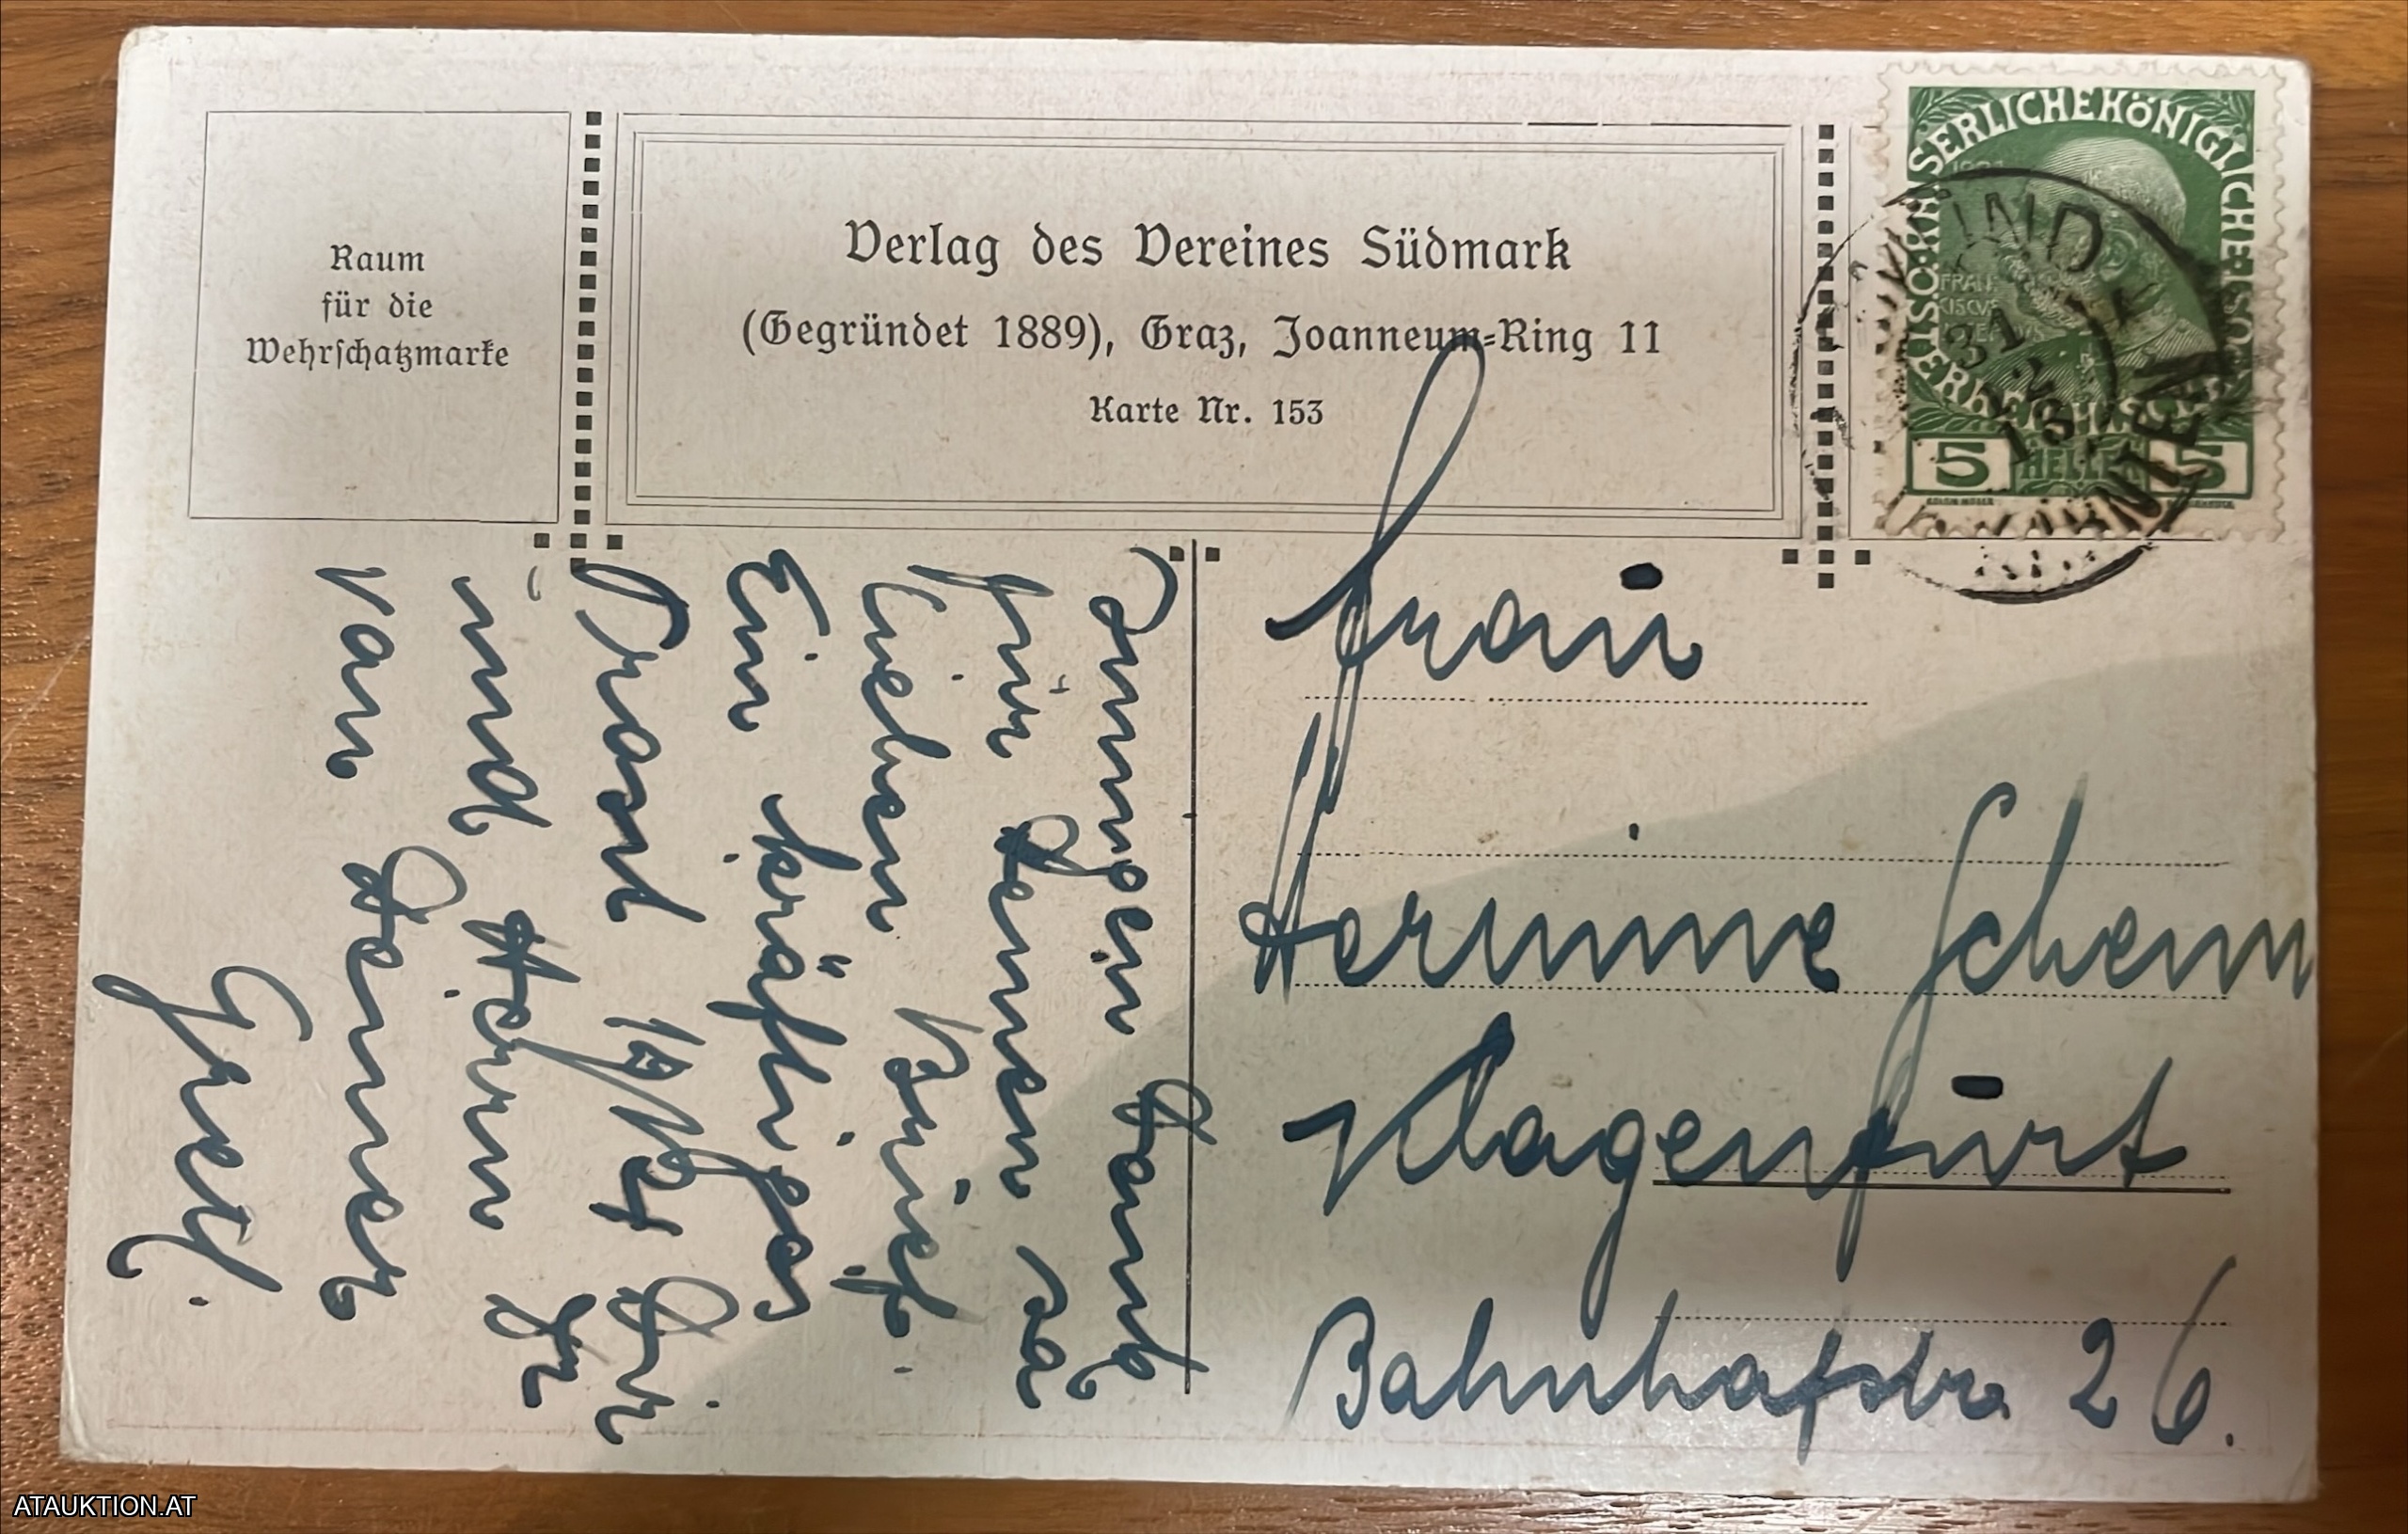 Raum
für die
Wehrschatzmarke
Verlag des Vereines Südmark
(Gegründet 1889), Graz, Joanneum-Ring 11
Karte Nr. 153
KAISERLICHE KÖNIGLICHE
FRAN
CISCVS
5 HELLER 5
31
12
13
KÄRNTEN
Frau
Hermine Schenn
Klagenfurt
Bahnhofstr. 26.
Innigen Dank
für Deinen so
lieben Brief.
Ein kräftiges
Prosit 1914 Dir
und Herrn Dr
von Deiner
Gretl.
ATAUKTION.AT